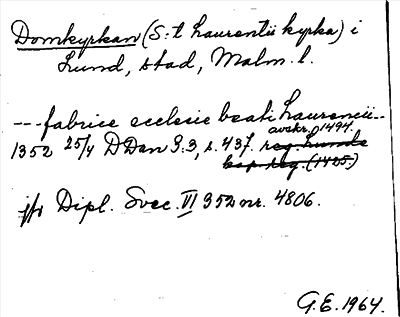 Domkyrkan (S:t Laurentii kyrka) i
Lund, stad, Malm. l.
---fabrice ecclesie beati Laurencii--
avskr. 1494.
1352 25/4 DDan 3:3, s. 437. reg. Lunds
kap. reg. (1425.)
jfr Dipl. Svec. VI 352 nr. 4806.
G.E. 1964.